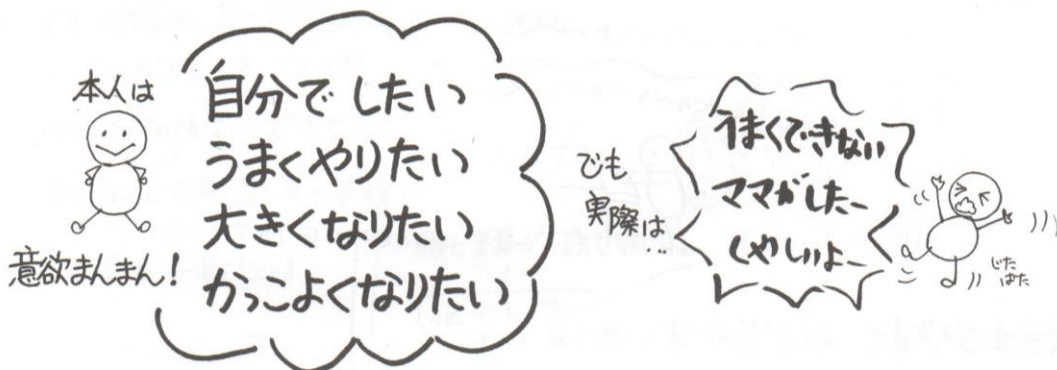 本人は
意欲まんまん!
自分でしたい
うまくやりたい
大きくなりたい
かっこよくなりたい
でも
実際は…
うまくできない
ママがしたー
くやしいよー
じた
ばた